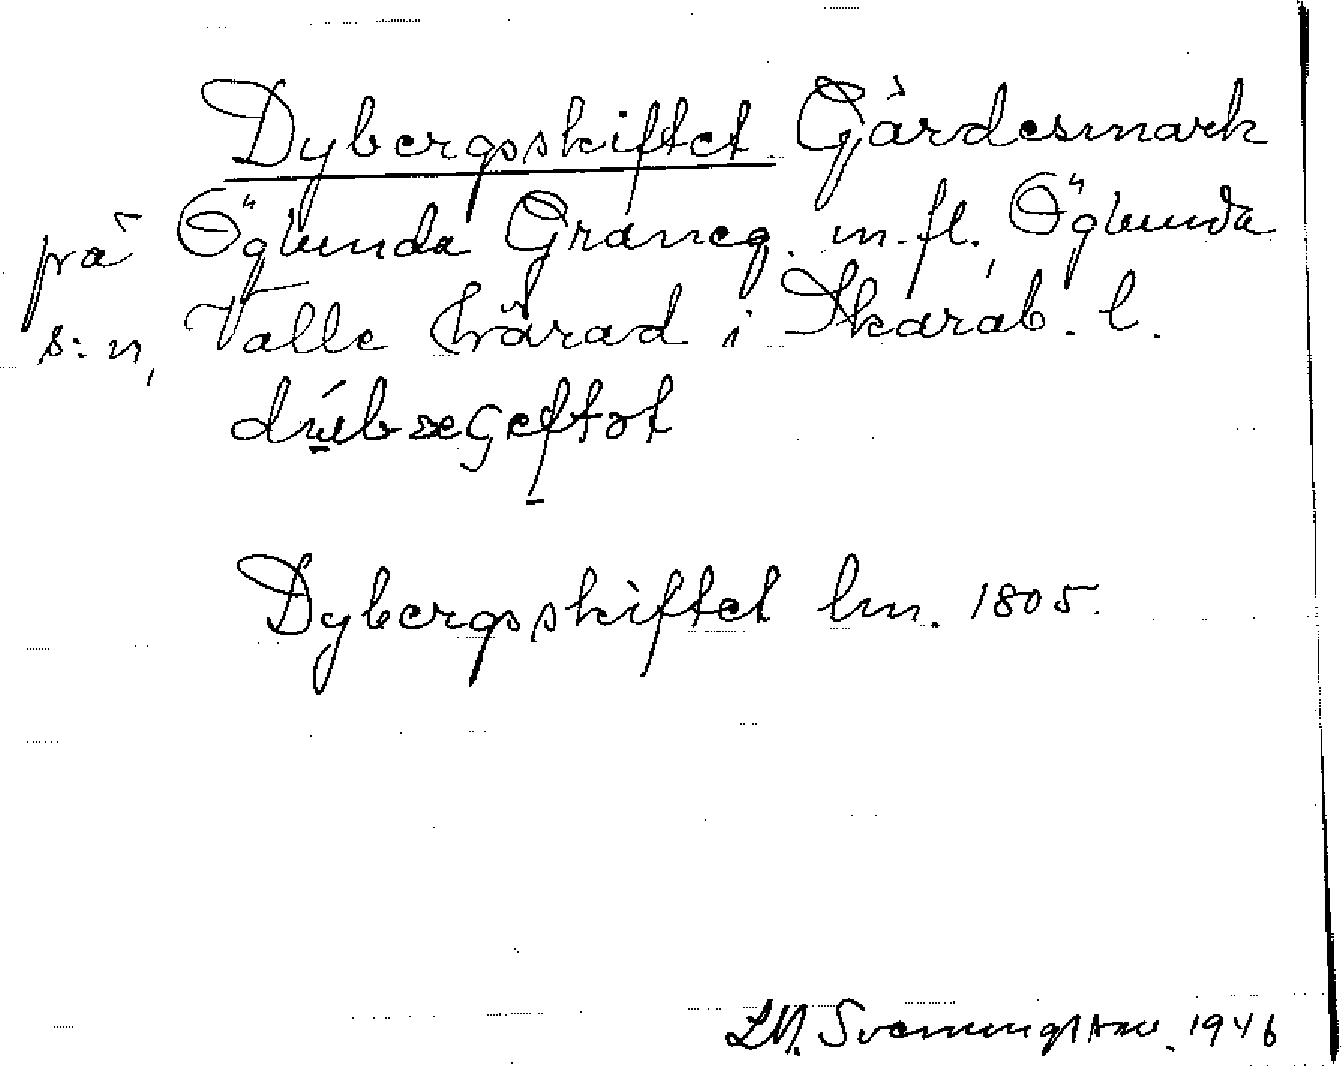 Dybergsskiftet. Gärdesmark
på Öglunda Graneg. m. fl., Öglunda
s:n, Valle härad i Skarab. l.
Dybergsskiftet lm. 1805.
Svenningsson. 1946